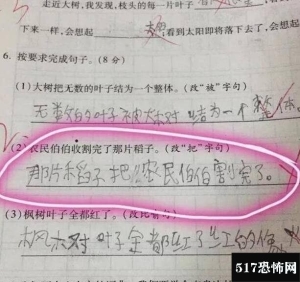 走近大树,我发现,枝头的每一片叶子
下来一样,会想起 ,看到太阳即将落下去了,会想起
6. 按要求完成句子。(8 分)
(1)大树把无数的叶子结为一个整体。(改“被”字句)
无数的叶子被大树结为一个整体
(2)农民伯伯收割完了那片稻子。(改“把”字句)
那片稻子把农民伯伯割完了。
(3)枫树叶子全都红了。
枫树叶子全都红了红的像
517恐怖网